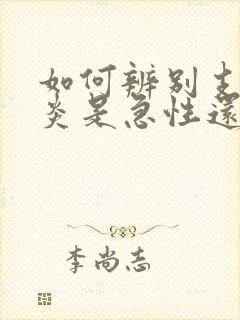 如何辨别支
炎是急性還
李尚志